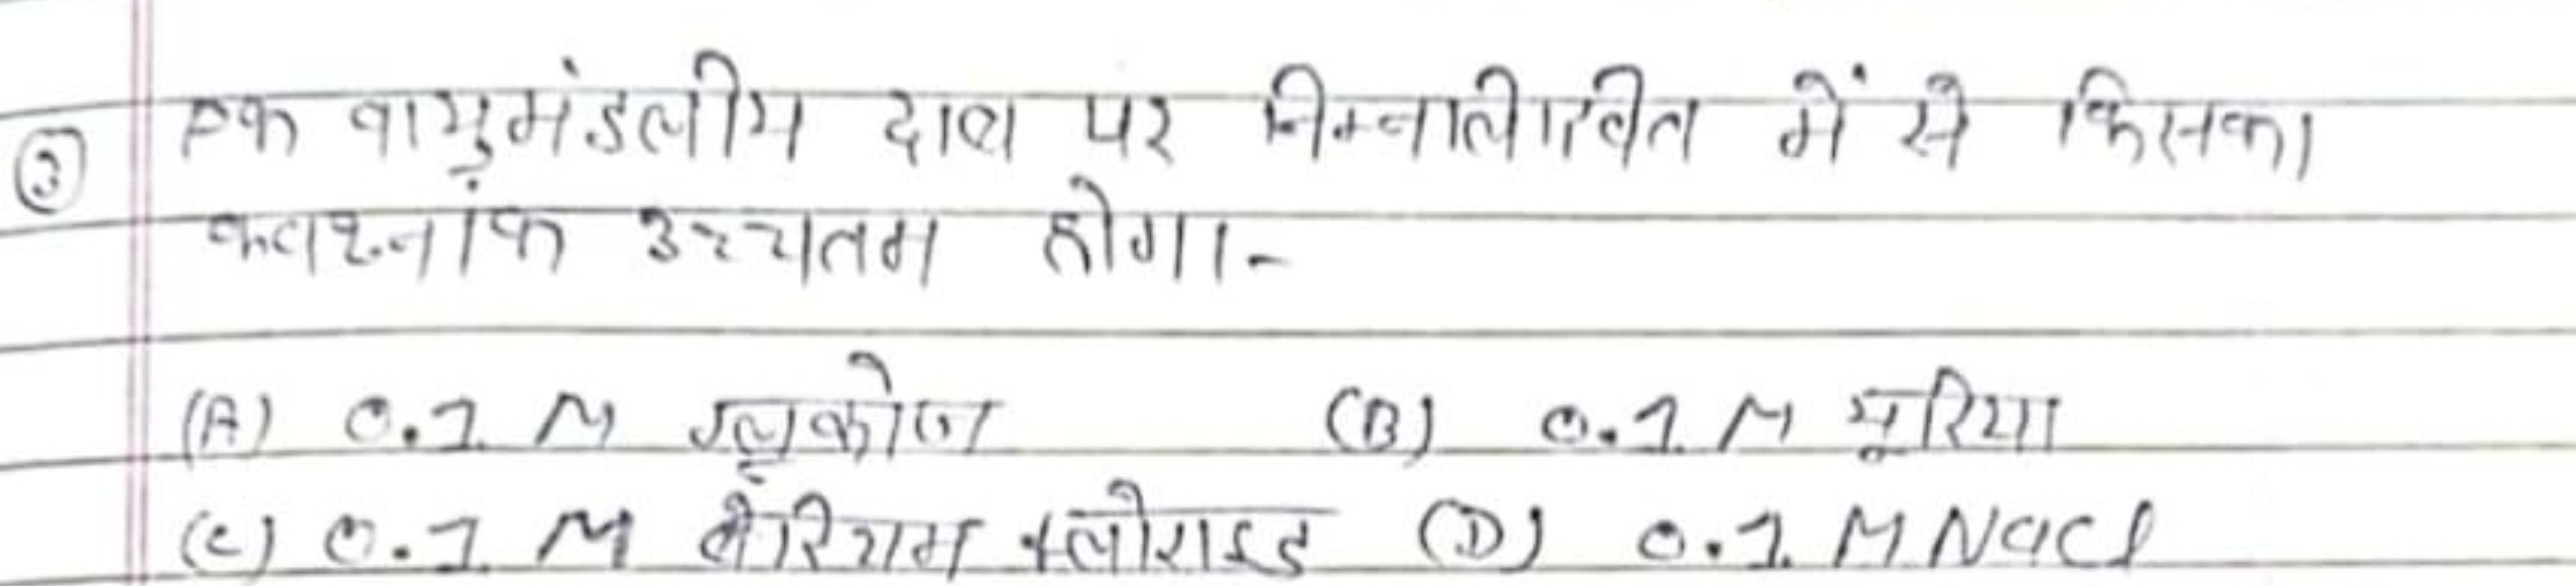 ③ एक वायुमंडलीय दाब पर निम्नलिखित में से किसका
क्वथनांक उच्चतम होगा-
(A) 0.1 M ग्लूकोज (B) 0.1 M यूरिया
(C) 0.1 M बेरियम क्लोराइड (D) 0.1 M NaCl